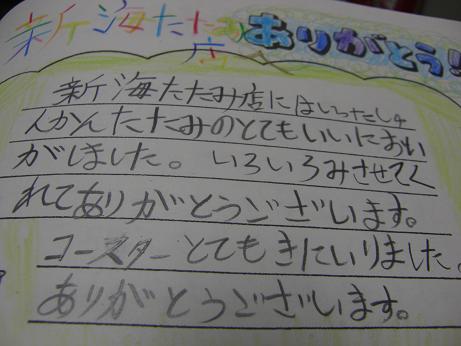 新海たたみ店
ありがとう!
新海たたみ店にはいったしゅ
んかんたたみのとてもいいにおい
がしました。いろいろみさせてく
れてありがとうございます。
コースターとてもきにいりました。
ありがとうございます。